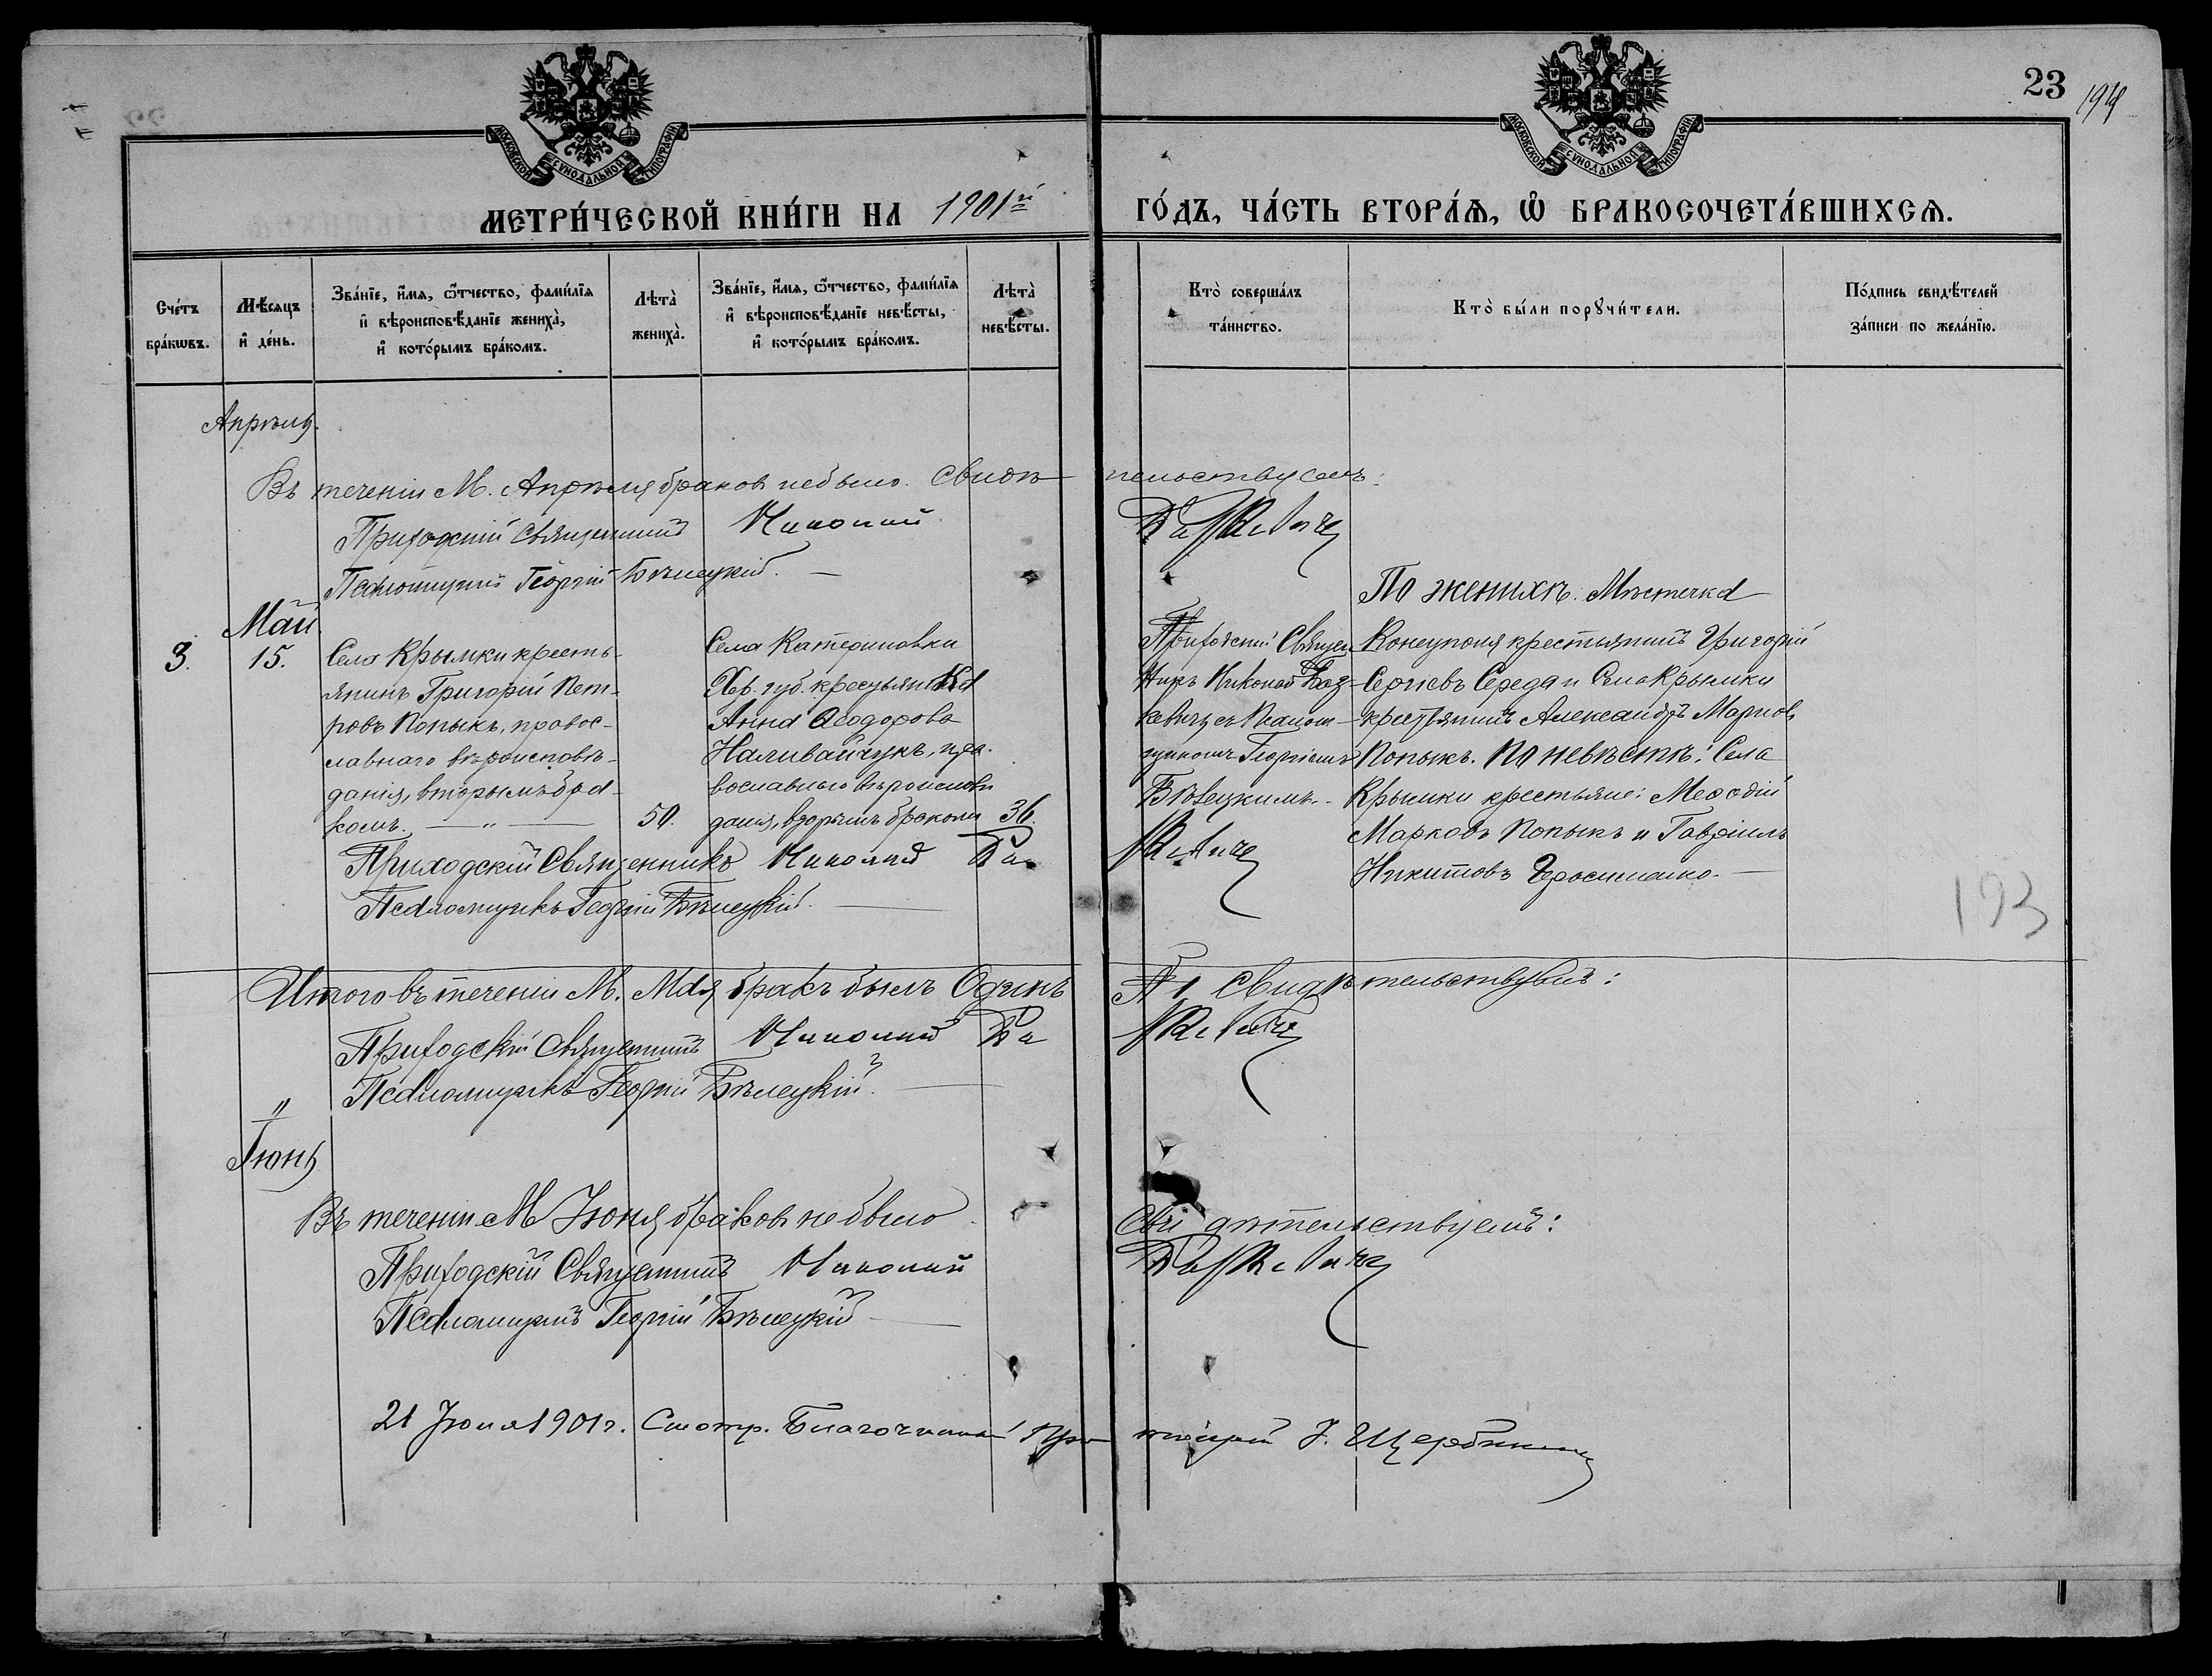 МОСКОВСКОЙ СѴНОДАЛЬНОЙ ТИПОГРАФІИ
МОСКОВСКОЙ СѴНОДАЛЬНОЙ ТИПОГРАФІИ
23
МЕТРИ́ЧЕСКОЙ КНИ́ГИ НА 1901й ГО́ДЪ, ЧА́СТЬ ВТОРА́Я, Ѡ БРАКОСОЧЕТА́ВШИХСЯ.
Сче́тъ
бра́кѡвъ.
Мѣ́сяцъ
и҆ де́нь.
Зва́нїе, и҆́мѧ, ѻ҆́тчество, фами́лїѧ
и҆ вѣроисповѣ́данїе жениха̀,
и҆ кото́рымъ бра́комъ.
Лѣта̀
жениха̀.
Зва́нїе, и҆́мѧ, ѻ҆́тчество, фами́лїѧ
и҆ вѣроисповѣ́данїе невѣ́сты,
и҆ кото́рымъ бра́комъ.
Лѣта̀
невѣ́сты.
Кто̀ соверша́лъ
та́инство.
Кто̀ бы́ли порꙋчи́тели.
По́дпись свидѣ́телей
за́писи по жела́нїю.
Апрѣль.
Въ теченіи М. Апрѣля браков небыло. Свидѣтельствуемъ:
Приходскій Священникъ Николай Вацкевичъ
Псаломщикъ Георгій Бѣлецкій. —
Май
3.
15.
Села Крымки кресть-
янинъ Григорій Пет-
ровъ Попыкъ, правос-
лавнаго вѣроисповѣ-
данія, вторымъ бра-
комъ. — " —
50.
Села Катериновки
Хер. губ. крестьянка
Анна Ѳеодорова
Наливайчукъ, пра-
вославнаго вѣроисповѣ
данія, вторымъ бракомъ
36.
Приходскій Священ
никъ Николай
кевичъ съ Псалом-
щикомъ Георгіемъ
Бѣлецкимъ.
По женихѣ: Мѣстечка
Конецполя крестьянинъ Григорій
Сергіевъ Середа и Села Крымки
крестьянинъ Александръ Марков
Попыкъ. По невѣстѣ: Села
Крымки крестьяне: Меѳодій
Марковъ Попыкъ и Гавріилъ
Никитовъ Герасименко. —
Приходскій Священникъ Николай
Псаломщикъ Георгій Бѣлецкій. —
193
Итого въ теченіи М. Мая бракъ былъ Одинъ 1 Свидѣтельствуемъ:
Приходскій Священникъ Николай
Псаломщикъ Георгій Бѣлецкій. —
"
Іюнь
Въ теченіи М Іюня браковъ не было Свидѣтельствуемъ:
Приходскій Священникъ Николай
Псаломщикъ Георгій Бѣлецкій —
21 Іюня 1901 г. Смотр. Благочинный